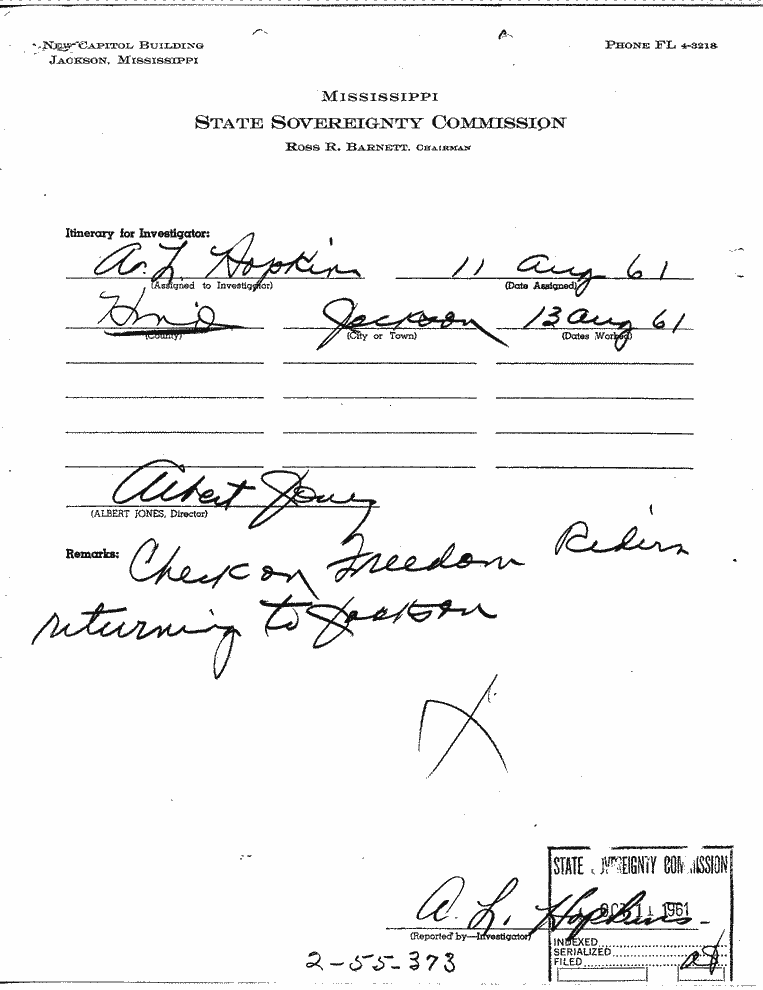 NEW CAPITOL BUILDING PHONE FL 4-3218
JACKSON, MISSISSIPPI
MISSISSIPPI
STATE SOVEREIGNTY COMMISSION
ROSS R. BARNETT, CHAIRMAN
Itinerary for Investigator:
A. L. Hopkins 11 Aug 61
(Assigned to Investigator) (Date Assigned)
Hinds Jackson 13 Aug 61
(County) (City or Town) (Dates Worked)
Albert Jones
(ALBERT JONES, Director)
Remarks: Check on Freedom Riders
returning to Jackson
STATE SOVEREIGNTY COMMISSION
A. L. Hopkins OCT 11 1961
(Reported by—Investigator)
INDEXED
SERIALIZED
FILED
2-55-373